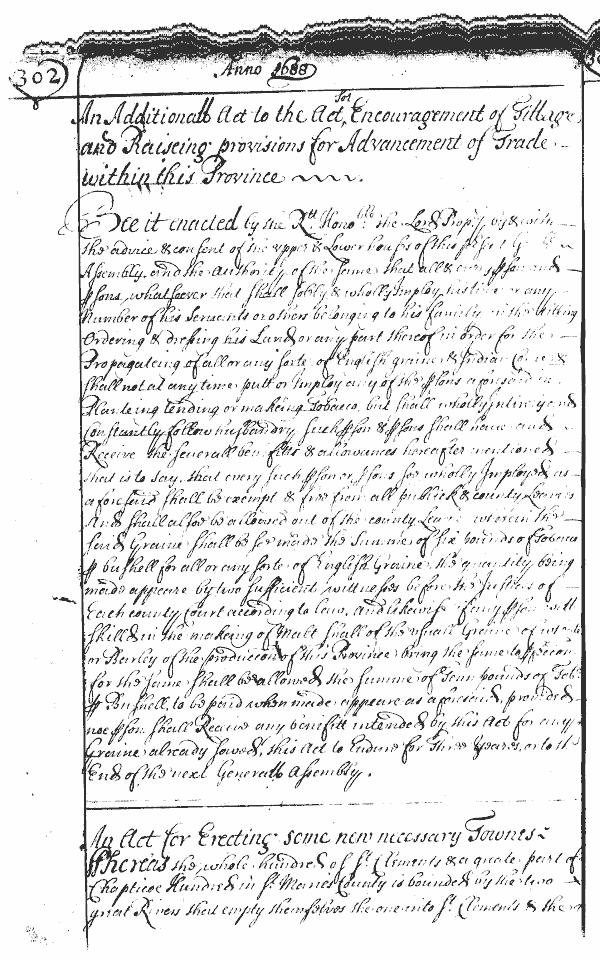 302
Anno 1688
An Additionall Act to the Act for Encouragement of Tillage
and Raiseing provisions for Advancement of Trade
within this Province
Bee it enacted by the Rtt Honoble the Lord Propry by & with
the advice & consent of the upper & Lower houses of this
Assembly, and the Authority of the same that all & every pson and
psons, whatsoever that shall solely & wholly Imploy himself or any
Number of his Servants or others belonging to his family in the tilling
Ordering & dressing his Land or any part thereof in order for the
Propagateing of all or any sorte of English graine & Indian Corne &
shall not at any time putt or Imploy any of the psons aforesaid in
Planteing tending or making Tobacco, but shall wholly intirely and
Constantly follow husbandry such pson & psons shall have and
Receive the severall benefitts & allowances hereafter mentioned
that is to say, that every such pson or psons soe wholly Imployed as
aforesaid shall be exempt & free from all publick & county Leavies
And shall alsoe be allowed out of the county Leavie wherein the
said Graine shall be soe made the Summe of six pounds of Tobacco
p bushell for all or any sorte of English Graine the quantity being
made appeare by two sufficient wittnesses before the Justices of
Each county Court according to law, And likewise if any pson well
skilled in the makeing of Malt shall of the usuall Graine of
or Barley of the produccon of this Province bring the same to
for the same shall be allowed the summe of Tenn pounds of Tob:
p Bushell, to be paid when made appeare as aforesaid, provided
noe pson shall Receive any benefitt intended by this Act for any
Graine already sowed, this Act to Endure for Three yeares, or to the
End of the next Generall Assembly.
An Act for Erecting some new necessary Townes
Whereas the whole hundred of St. Clements & a quate part of
Chapticoe Hundred in St. Maries County is bounded by the two
great Rivers that empty themselves the one into St. Clements & the